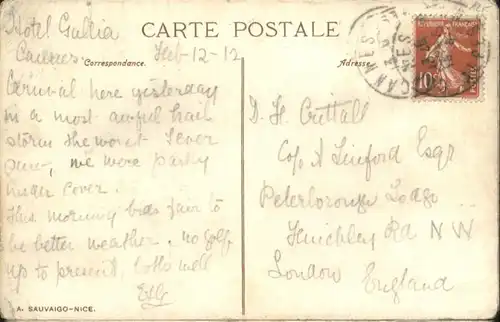 CARTE POSTALE
Correspondance.
Adresse
Hotel Gallia
Cannes Feb-12-12
Carnival here yesterday
in a most awful hail
storm the worst I ever
saw, we were partly
under cover.
This morning bids fair to
be better weather, no golf
up to present, both well
D. H. Crittall
C/o A Linford Esqr
Peterborough Lodge
Finchley Rd N W
London England
CANNES
10
A. SAUVAIGO-NICE.